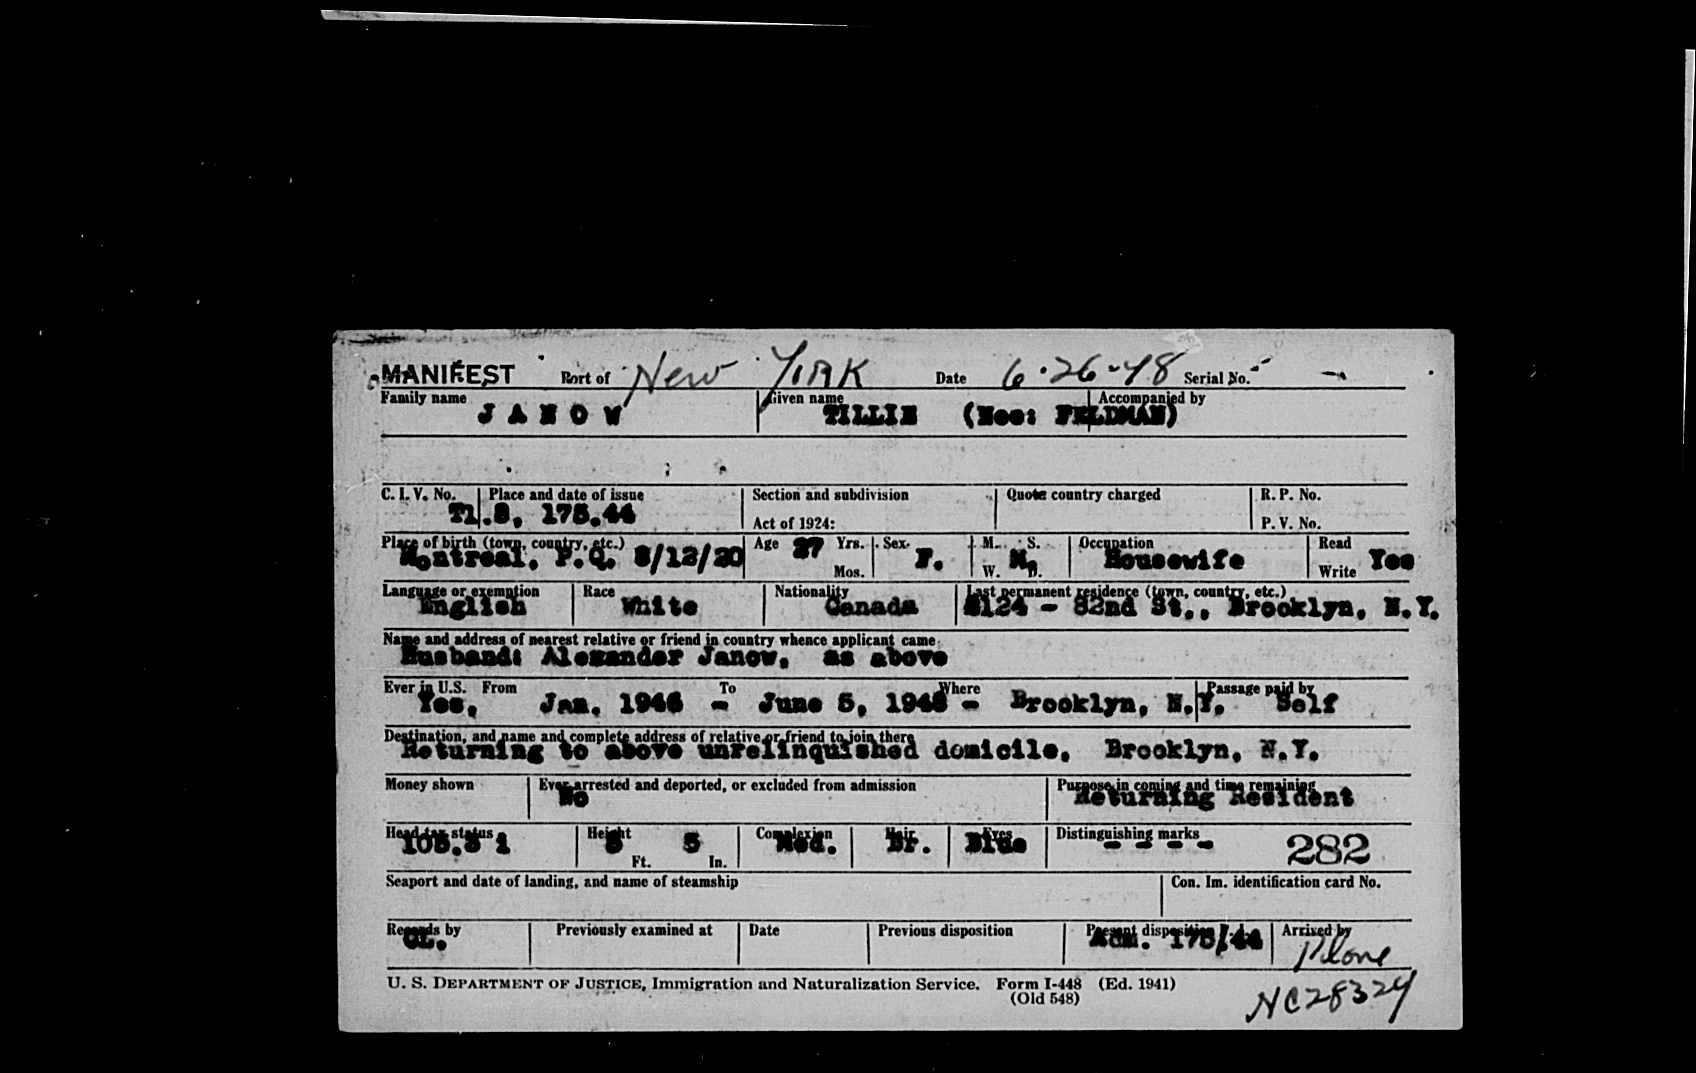 MANIFEST Port of New York Date 6-26-48 Serial No. -
Family name Given name Accompanied by
JANOW TILLIE (Nee: FELDMAN)
C. I. V. No. Place and date of issue Section and subdivision Quota country charged R. P. No.
T1.8, 175.44 Act of 1924: P. V. No.
Place of birth (town, country, etc.) Age Yrs. Sex M. S. Occupation Read
Montreal, P.Q. 8/12/20 27 Mos. F. W. M. D. Housewife Write Yes
Language or exemption Race Nationality Last permanent residence (town, country, etc.)
English White Canada 2124 - 82nd St., Brooklyn, N.Y.
Name and address of nearest relative or friend in country whence applicant came
Husband: Alexander Janow, as above
Ever in U.S. From To Where Passage paid by
Yes, Jan. 1946 - June 5, 1948 - Brooklyn, N.Y. Self
Destination, and name and complete address of relative or friend to join there
Returning to above unrelinquished domicile, Brooklyn, N.Y.
Money shown Ever arrested and deported, or excluded from admission Purpose in coming and time remaining
No Returning Resident
Head tax status Height Complexion Hair Eyes Distinguishing marks
105.3 i 5 Ft. 5 In. Med. Br. Blue - - - - 282
Seaport and date of landing, and name of steamship Con. Im. identification card No.
Records by Previously examined at Date Previous disposition Present disposition Arrived by
GL. Adm. 175/44 Plane
U. S. DEPARTMENT OF JUSTICE, Immigration and Naturalization Service. Form I-448 (Ed. 1941)
(Old 548)
NC28324